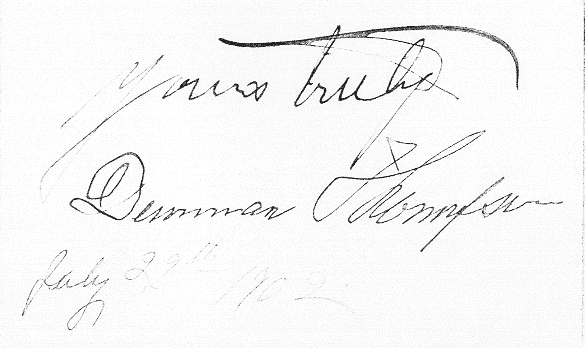 Yours truly
Denman Thompson
July 22th 1902